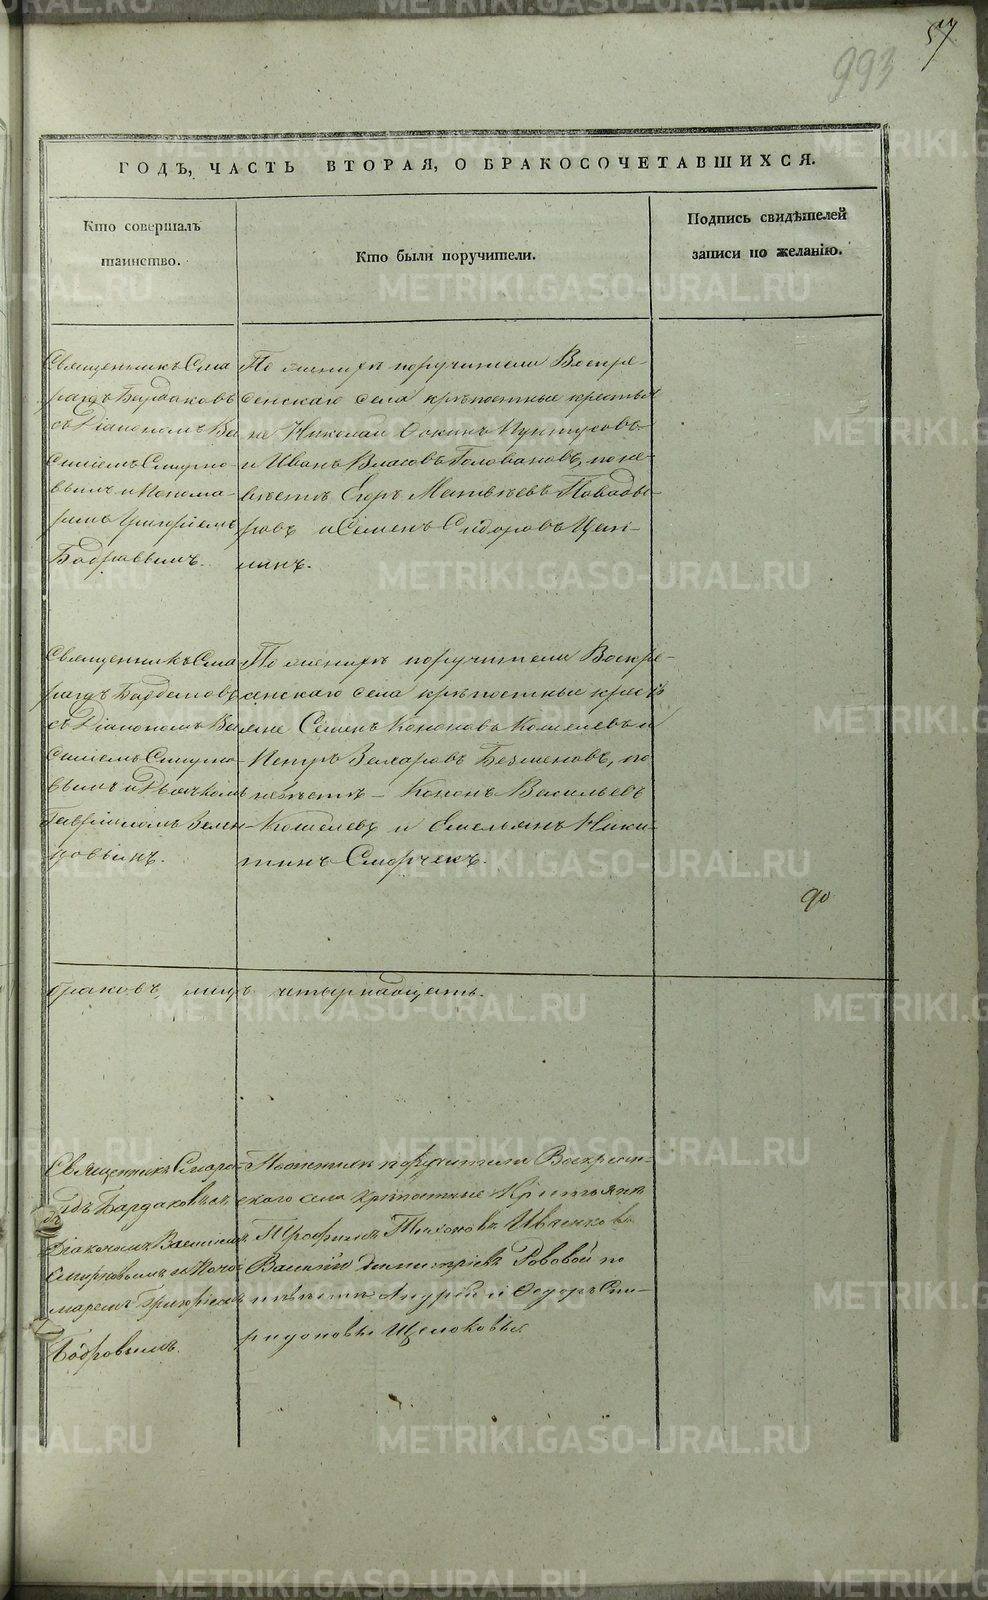 57
993
ГОДЪ, ЧАСТЬ ВТОРАЯ, О БРАКОСОЧЕТАВШИХСЯ.
Кто совершалъ
таинство.
Кто были поручители.
Подпись свидѣтелей
записи по желанію.
Священникъ Сма
рагдъ Бардаковъ
съ Діакономъ Ва
силіемъ Смирно-
вымъ и Понома-
ремъ Григоріемъ
Бобровымъ.
По женихѣ поручители Воскре-
сенскаго села крѣпостные крестья
не Николай Ѳокинъ
и Иванъ Власовъ Головановъ, по не-
вѣстѣ Егоръ Матвѣевъ
ровъ и Семенъ Сидоровъ
Священникъ Сма
рагдъ Бардаковъ
съ Діакономъ Ва
силіемъ Смирно-
вымъ и Дьячкомъ
Гавріиломъ
новымъ.
По женихѣ поручители Воскре-
сенскаго села крѣпостные кресть
яне Семенъ Кононовъ Кошелевъ и
Петръ Захаровъ Безменовъ, по
невѣстѣ - Кононъ Васильевъ
Кошелевъ и Емельянъ Ники-
тинъ Сморчекъ.
90
браковъ, лицъ четырнадцать.
Священникъ Смара-
гдъ Бардаковъ съ
Діакономъ Василіемъ
Смирновымъ и Поно
маремъ Григоріемъ
Бобровымъ.
По женихѣ поручители Воскресен-
скаго села крѣпостные Крестьяне
Трофимъ Тихоновъ Ивченковъ
Василій Димитріевъ Рововой по
невѣстѣ Андрей и Ѳедоръ Спи-
ридоновы Щелоковы.
METRIKI.GASO-URAL.RU